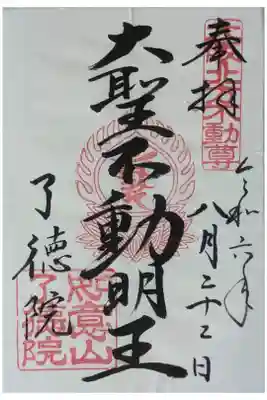 奉拝
令和六年
八月二十二日
大聖不動明王
了徳院
如意山
了徳院